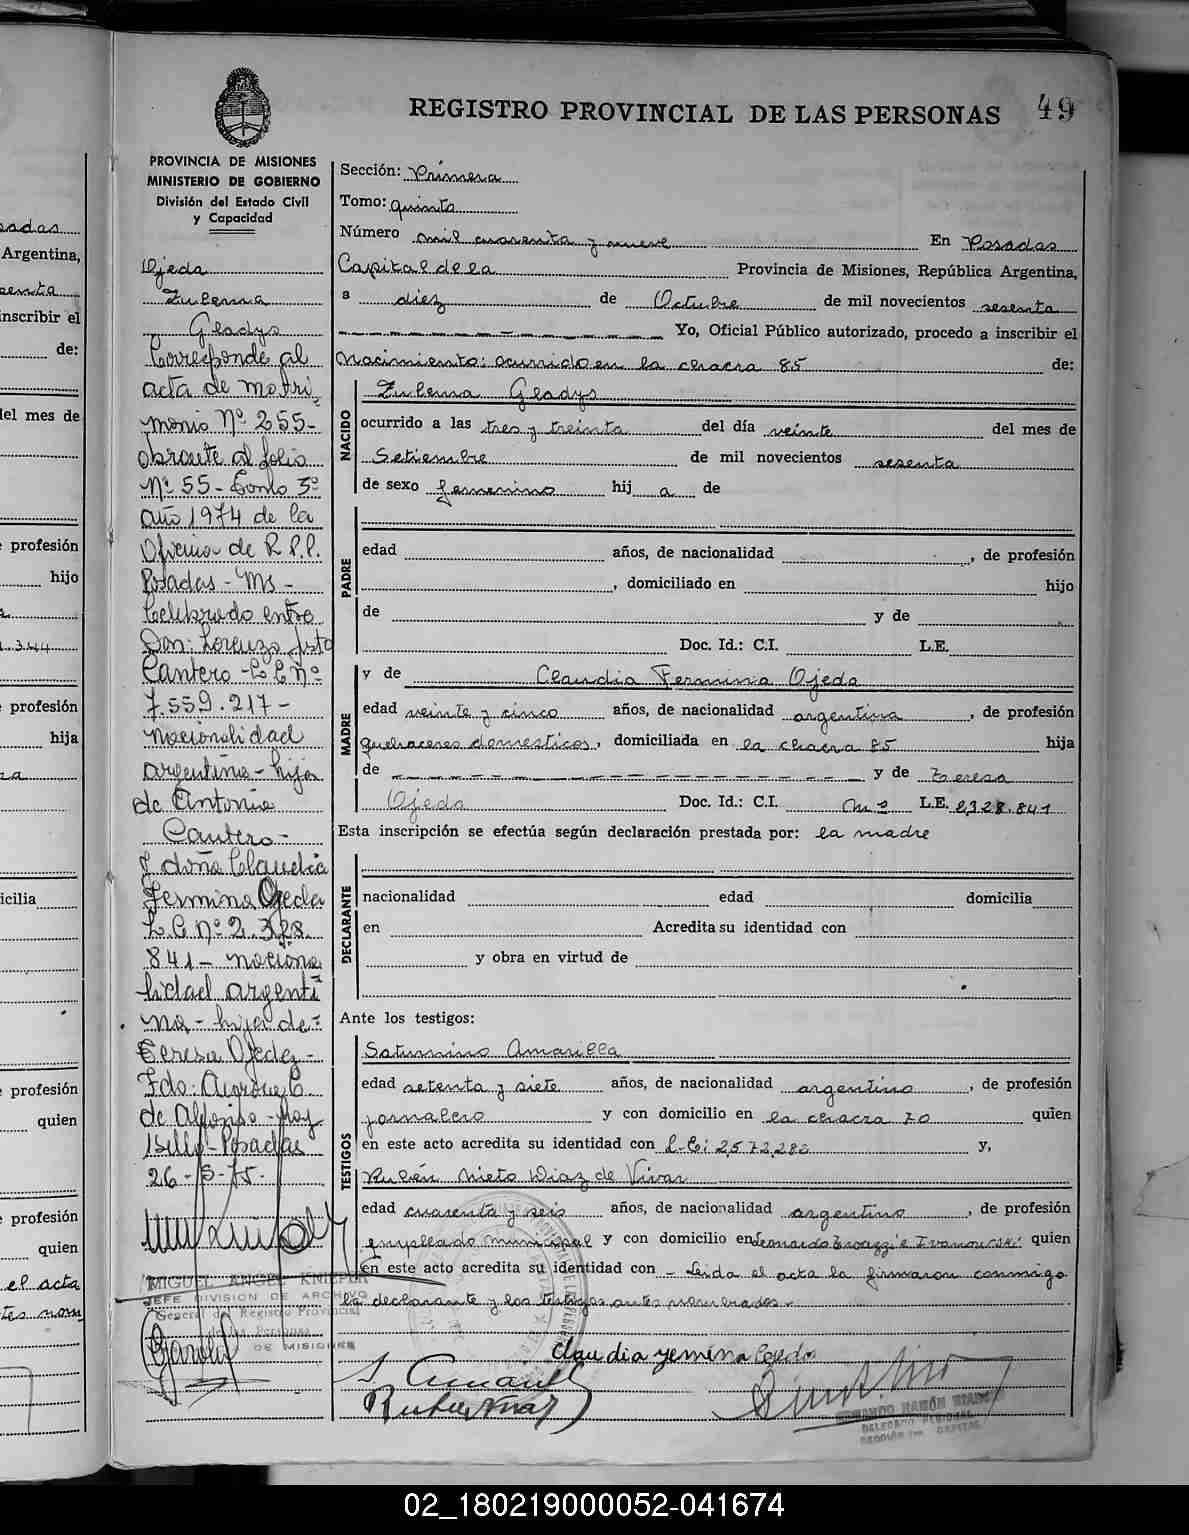 REGISTRO PROVINCIAL DE LAS PERSONAS
49
PROVINCIA DE MISIONES
MINISTERIO DE GOBIERNO
División del Estado Civil
y Capacidad
Ojeda
Zulema
Gladys
Corresponde al
acta de matri
monio Nº 255-
obrante al folio
Nº 55 - Tomo 3º
año 1974 de la
Oficina de R.P.P.
Posadas - Ms -
Celebrado entre
Don: Lorenzo Justo
Cantero - L E Nº
7.559.217 -
nacionalidad
argentina - hijo
de Antonia
Cantero -
y doña Claudia
Fermina Ojeda
L.C Nº 2.328.
841 - naciona
lidad argenti
na - hija de:
Teresa Ojeda -
Fdo:
de Alfonso - hay
Sello - Posadas
26-5-75.
MIGUEL ANGEL KNIEPER
JEFE DIVISION DE ARCHIVO
General del Registro Provincial
de las Personas
DE MISIONES
Sección: Primera
Tomo: quinto
Número mil cuarenta y nueve En Posadas
Capital de la Provincia de Misiones, República Argentina,
a diez de Octubre de mil novecientos sesenta
Yo, Oficial Público autorizado, procedo a inscribir el
Nacimiento: ocurrido en la chacra 85 de:
NACIDO
Zulema Gladys
ocurrido a las tres y treinta del día veinte del mes de
Setiembre de mil novecientos sesenta
de sexo femenino hij a de
PADRE
edad años, de nacionalidad , de profesión
, domiciliado en hijo
de y de
Doc. Id.: C.I. L.E.
MADRE
y de Claudia Fermina Ojeda
edad veinte y cinco años, de nacionalidad argentina, de profesión
quehaceres domesticos, domiciliada en la chacra 85 hija
de y de Teresa
Ojeda Doc. Id.: C.I. Nº L.E. 2.328.841
Esta inscripción se efectúa según declaración prestada por: la madre
DECLARANTE
nacionalidad edad domicilia
en Acredita su identidad con
y obra en virtud de
Ante los testigos:
TESTIGOS
Saturnino Amarilla
edad setenta y siete años, de nacionalidad argentino, de profesión
jornalero y con domicilio en la chacra 70 quien
en este acto acredita su identidad con L.E: y,
Rubén Nieto Diaz de Vivar
edad cuarenta y seis años, de nacionalidad argentino, de profesión
empleado municipal y con domicilio en quien
en este acto acredita su identidad con - Leida el acta la firmaron conmigo
la declarante y los testigos antes nombrados.-
Claudia Fermina Ojeda
RAMÓN
DELEGADO
SECCIÓN CAPITAL
02_180219000052-041674